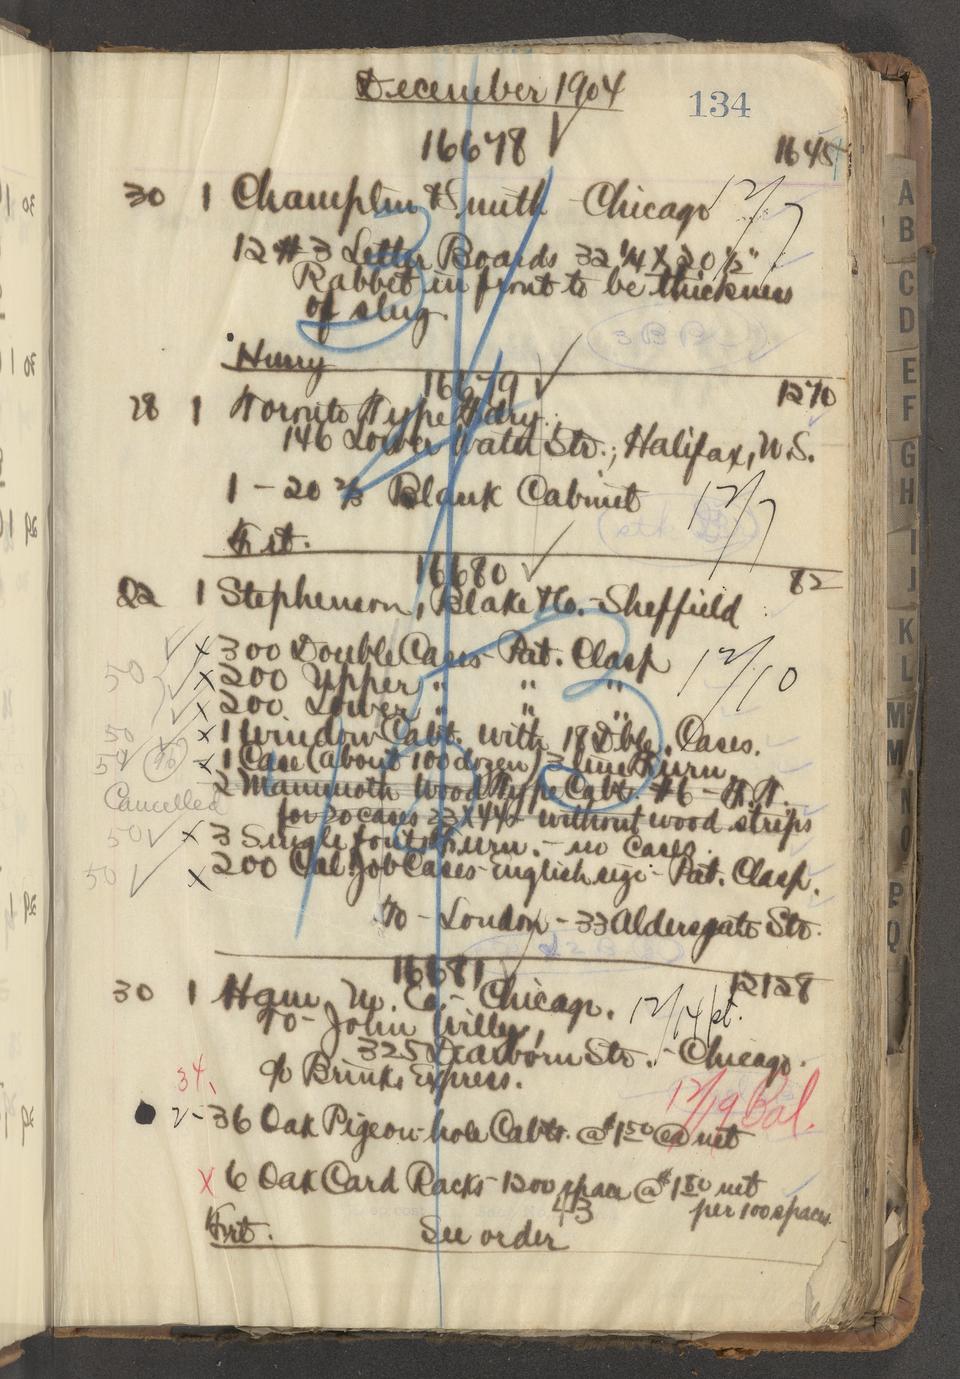 December 1904 134
16678 1645
30 1 Champlin & Smith - Chicago 12/7
12 #3 Letter Boards 32 1/4 X 20 1/2"
Rabbet in front to be thickness
of slug.
Hurry
16679 1270
28 1 Toronto Type Fdry.
146 Lower Water Str.; Halifax, N.S.
1 - 20 2/3 Blank Cabinet 12/7
Frt.
16680 82
22 1 Stephenson, Blake & Co. - Sheffield
x 300 Double Cases - Pat. Clasp 12/10
50 x 200 Upper " " "
x 200 Lower " " "
50 x 1 Window Cabt. with 18 Dble. Cases.
50 x 1 Case (about 100 dozen) 3 line Furn.
Cancelled 2 Mammoth Wood Type Cabt. #6 -
for 20 cases 23 X 44 - without wood strips
50 x 3 Single font Furn. - no cases.
50 x 200 Cal. Job Cases - English size - Pat. Clasp.
To - London - 33 Aldersgate Str.
16681 12128
30 1 Ham. M. Co. - Chicago. 12/14 pt.
To - John Willy,
325 Dearborn Str. - Chicago.
c/o Brinks Express.
34 12/19 Bal.
2 - 36 Oak Pigeon-hole Cabts. @ $1.50 ea net
x 6 Oak Card Racks - 1300 space @ $1.80 net
per 100 spaces
43
Frt. See order
A
B
C
D
E
F
G
H
I
J
K
L
M
M
N
O
P
Q